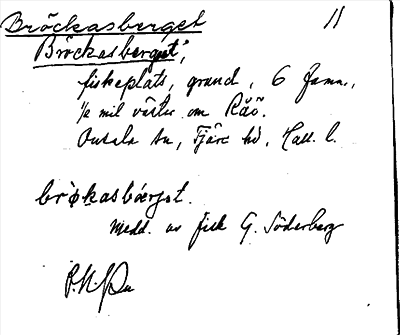 Bröckasberget 11
Bröckasberget,
fiskeplats, grund, 6 famn.,
1/2 mil väster om Råö.
Onsala sn, Fjäre hd, Hall. l.
brø̀kasbærjət.
Medd. av fisk G. Söderberg